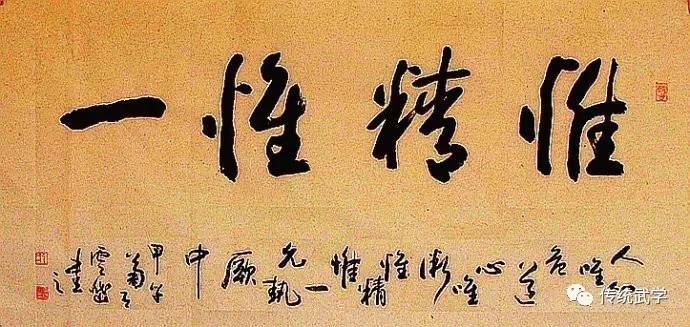 惟精惟一
人心唯危道心唯微惟精惟一允執厥中
甲午菊月雲書之
传统武学